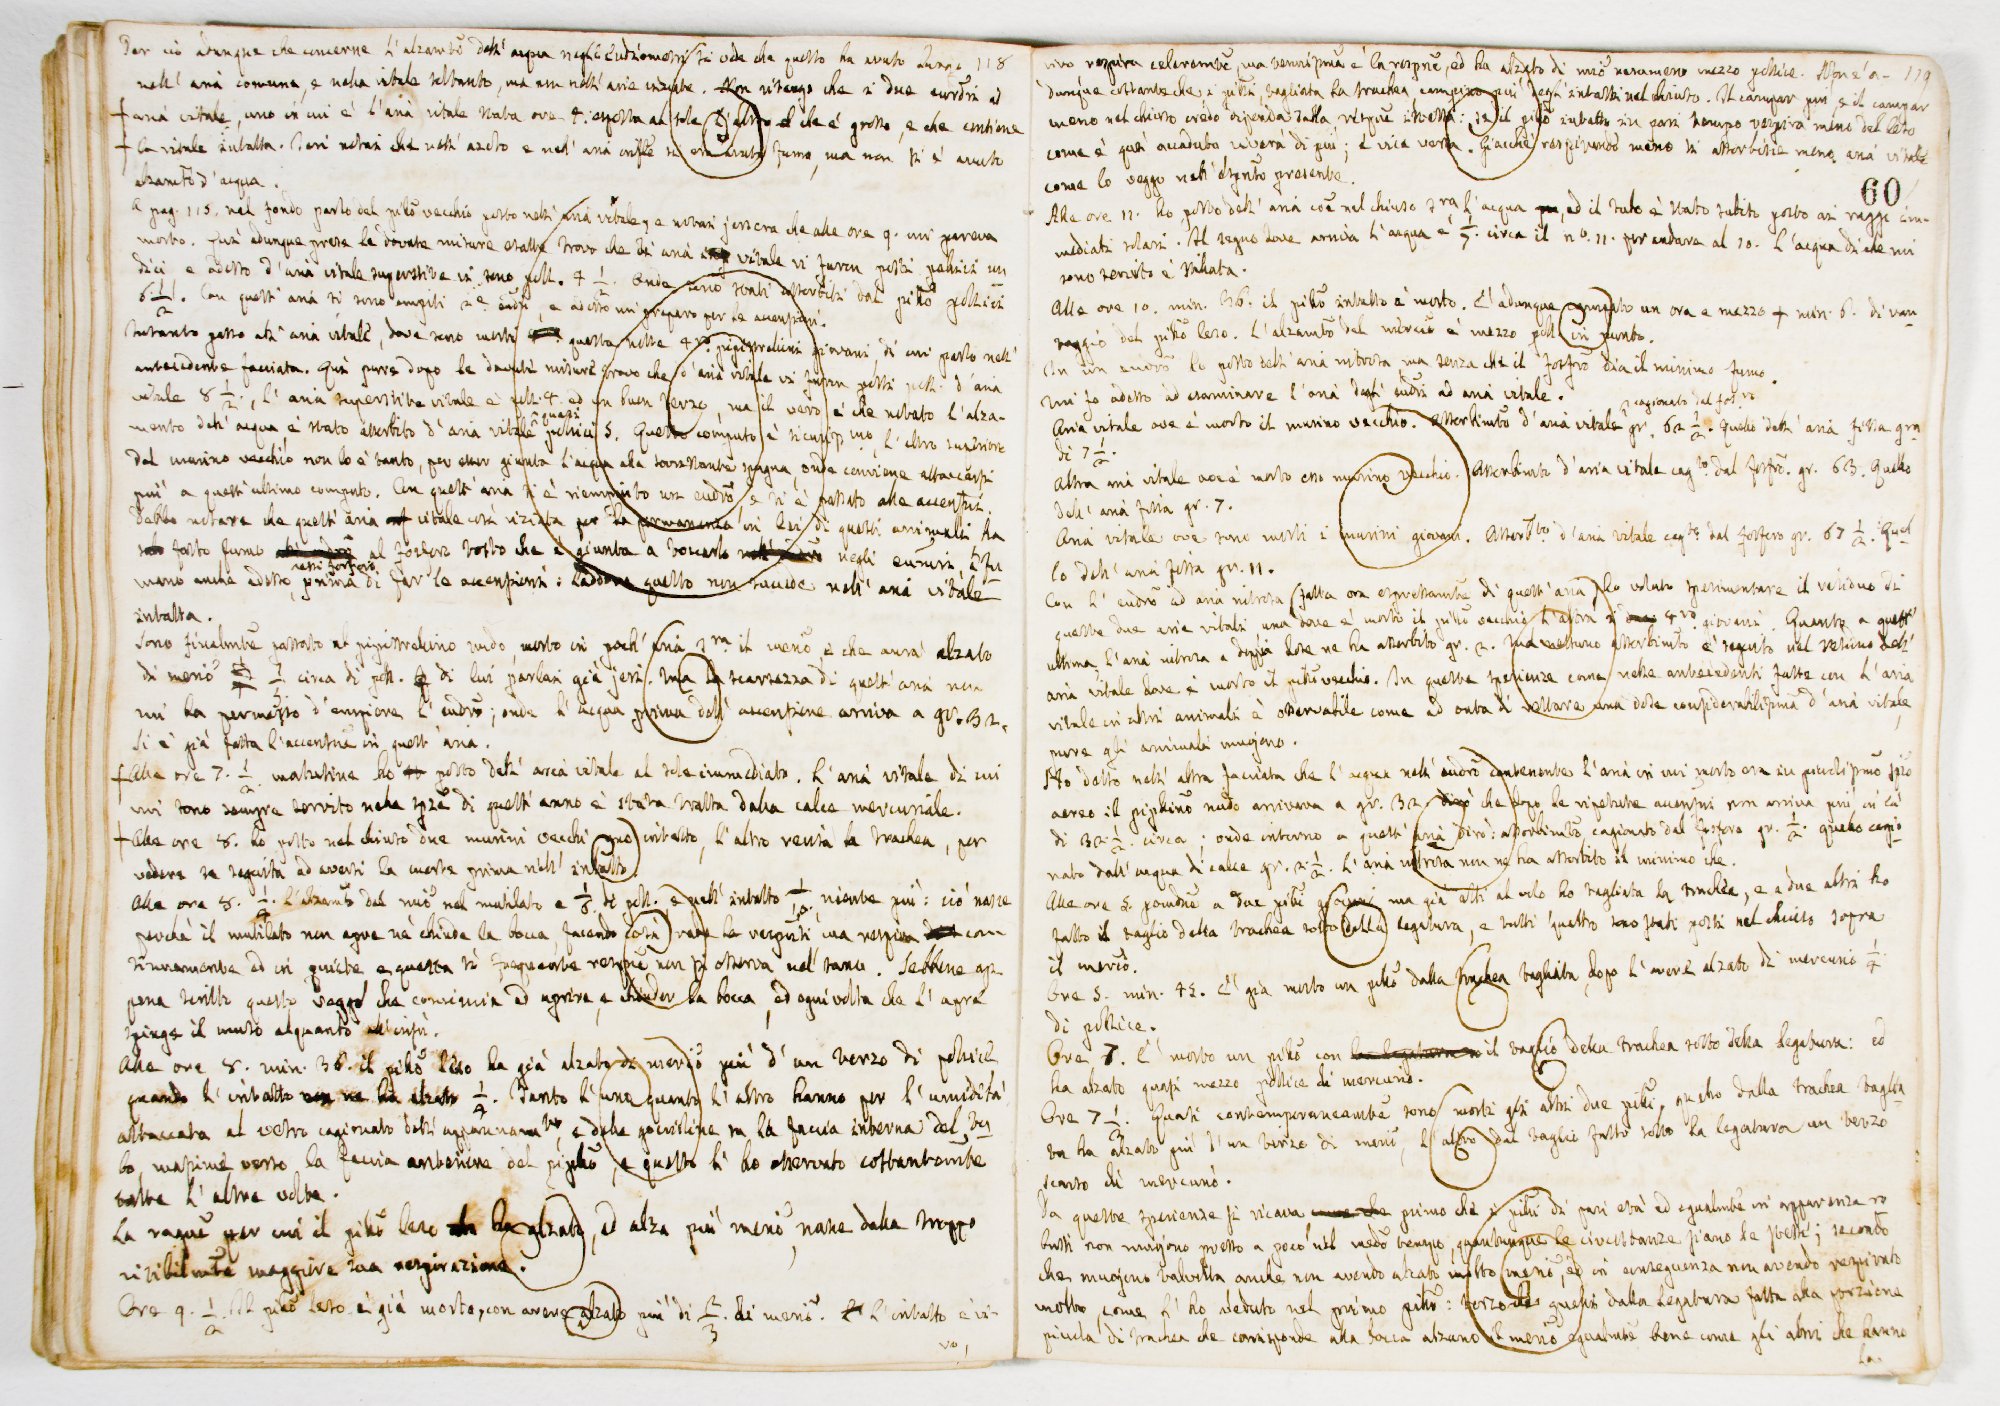 Per ciò adunque che concerne l'alzam̃to dell'acqua negli Eudiometri si vede che questo ha avuto luogo 118
nell'aria comune, e nella vitale soltanto, ma non nell'arie viziate. Non ritengo che i due eudri ad
aria vitale, uno in cui è l'aria vitale stata ove 4. esposta al sole l'altro che è grosso, e che contiene
la vitale intatta. Ieri notai che nell'azoto e nell'aria avuto fumo, ma non si è avuto
alzam̃to d'acqua.
A pag. 115. nel fondo parlo del pip̃lo vecchio posto nell'aria vitale, e notai jersera che alle ore 9. mi pareva
morto. Qui adunque prese le dovute misure esatte trovo che di aria vitale vi furon posti pollici un
dici e adesso d'aria vitale superstite vi sono poll. 4 1/2. Onde sono stati assorbiti dal pip̃lo pollici
6 1/2. Con quest'aria si sono empiti 2 eudri, e adesso mi preparo per le accensioni.
Intanto passo all'aria vitale, dove sono morti questa notte 4 pipistrellini giovani, di cui parlo nell'
antecedente facciata. Qui pure dopo le dovute misure trovo che d'aria vitale vi furon posti poll. d'aria
vitale 8 1/2, l'aria superstite vitale è poll. 4. ed un buon terzo, ma il vero è che notato l'alza-
mento dell'acqua è stato assorbito d'aria vitale quasi pollici 5. Questo computo è sicurissimo, l'altro anteriore
del murino vecchio non lo è tanto, per esser giunta l'acqua alla soprastante spugna, onde conviene attaccarsi
più a quest'ultimo computo. Con quest'aria si è riempiuto un eudro, e si è passato alle accensioni.
Debbo notare che quest'aria vitale così viziata per la permanenza in lei di questi animali ha
fatto fumo al fosforo tosto che è giunta a toccarlo negli eudri, e fu
mano anche adesso essi fosfori, prima di far le accensioni: laddove questo non succede nell'aria vitale
intatta.
Sono finalm̃te passato al pipistrellino nudo, morto in poch'aria 2 ra il merc̃o, e che avea alzato
di merc̃o 1/3 circa di poll. di lui parlai già jeri. Ma la scarsezza di quest'aria non
mi ha permesso d'empiere l'eudro; onde l'acqua prima dell'accensione arriva a gr. 32.
Si è già fatta l'accens̃ne in quest'aria.
Alle ore 7. 1/2 mattutine ho posto dell'acqua vitale al sole immediato. L'aria vitale di cui
mi sono sempre servito nelle sp̃ze di quest'anno è stata tratta dalla calce mercuriale.
Alle ore 8. ho posto nel chiuso due murini vecchi uno intatto, l'altro recisa la trachea, per
vedere se seguita ad aversi la morte prima nell'intatto.
Alle ore 8. 1/4. L'alzam̃to del merc̃o nel mutilato è 1/3. di poll. e nell'intatto 1/10. niente più: ciò nasce
perchè il mutilato non apre nè chiude la bocca, facendo così rare le respiraz̃ni, ma respira con
tinuamente ed in quiete e questa sì frequente respirz̃ne non si osserva nel sano. Sebbene ap-
pena scritto questo veggo che comincia ad aprire, e chiuder la bocca, ed ogni volta che l'apre
spinge il muso alquanto all'insù.
Alle ore 8. min. 36. il pip̃lo leso ha già alzato di merc̃o più d'un terzo di pollice
quando l'intatto 1/4. Tanto l'uno quanto l'altro hanno per l'umidità
attaccata al vetro cagionato dell'appannam̃to, e delle goccioline su la faccia interna del tu-
bo, massime verso la faccia anteriore del pip̃lo, e questo l'ho osservato costantem̃te
tutte l'altre volte.
La ragio͂ per cui il pip̃lo leso ha alzato, ed alza più merc̃o, nasce dalla troppo
visibilm̃te maggiore sua respirazione.
Ore 9. 1/2. Il pip̃lo leso è già morto, con avere alzato più di 2/3 di merc̃o. L'intatto è vi-
vo,
vivo respira celerem̃te, ma veniss̃ima è la respirz̃ne, ed ha alzato di merc̃o nemmeno mezzo pollice. 119
dunque costante che i pip̃li, tagliata la trachea campino più degl'intatti nel chiuso. Il campar più, e il campar
meno nel chiuso credo dipenda dalla respirz̃ne stessa: se il pip̃lo intatto in pari tempo respira meno del leso
come è qui accaduto viverà di più; e vice versa. Giacchè respirando meno si assorbisce meno aria vitale
come lo veggo nell'esp̃m̃to presente.
60
Alle ore 11. ho posto dell'aria cõe nel chiuso sopra l'acqua, ed il tubo è stato subito posto ai raggi im-
mediati solari. Il segno dove arriva l'acqua è 1/3. circa il n.o 11. per andare al 10. L'acqua di che mi
sono servito è stillata.
Alle ore 10. min. 36. il pip̃lo intatto è morto. È adunque campato un ora e mezzo + min. 6. di van-
taggio del pip̃lo leso. L'alzam̃to del merc̃o è mezzo poll. in punto.
In un eudro ho posto dell'aria nitrosa ma senza che il fosforo dia il minimo fumo.
Mi fo adesso ad esaminare l'aria degli eudri ad aria vitale.
Aria vitale ove è morto il murino vecchio. Assorbim̃to d'aria vitale cagionato dal fosforo gr. 62 1/2. Quello dell'aria fissa gra
di 7 1/2.
Altra aria vitale ove è morto esso murino vecchio. Assorbim̃to d'aria vitale cag.to dal fosforo gr. 63. Quello
dell'aria fissa gr. 7.
Aria vitale ove sono morti i murini giovani. Assorb.to d'aria vitale cag.to dal fosforo gr. 67 1/2. Quel
lo dell'aria fissa gr. 11.
Con l'eudro ad aria nitrosa (fatta ora espressam̃te di quest'aria) ho voluto sperimentare il residuo di
queste due arie vitali una dove è morto il pip̃lo vecchio l'altra i 4 giovani. Quanto a quest'
ultima, l'aria nitrosa a doppia dose ne ha assorbito gr. 2. Ma nessuno assorbim̃to è seguito nel residuo dell'
aria vitale dove è morto il pip̃lo vecchio. In queste sperienze come nelle antecedenti fatte con l'aria
vitale in altri animali è osservabile come ad onta di restare una dose considerabilissima d'aria vitale,
pure gli animali muojono.
Ho detto nell'altra facciata che l'acqua nell'eudro contenente l'aria in cui morto era in picciolissimo sp̃zio
aereo il pip̃lino nudo arrivava a gr. 32. che dopo le ripetute accens̃ni non arriva più, in là
di 32 1/2. circa; onde intorno a quest'aria dirò: assorbim̃to cagionato dal fosforo gr. 1/2. quello cagio-
nato dall'acqua di calce gr. 2 1/2. L'aria nitrosa non ne ha assorbito il minimo che.
Alle ore 5. pomdne a due pip̃li giovani ma già atti al volo ho tagliata la trachea, e a due altri ho
fatto il taglio della trachea sotto della legatura, e tutti quattro sono stati posti nel chiuso sopra
il merc̃o.
Ore 5. min. 45. È già morto un pip̃lo dalla trachea tagliata dopo l'avere alzato di mercurio 1/4
di pollice.
Ore 7. È morto un pip̃lo con il taglio della trachea sotto della legatura: ed
ha alzato quasi mezzo pollice di mercurio.
Ore 7 1/2. Quasi contemporaneam̃te sono morti gli altri due pip̃li, quello dalla trachea taglia-
ta ha alzato più d'un terzo di merc̃o, l'altro dal taglio fatto sotto la legatura un terzo
scarso di mercurio.
Da queste sperienze si ricava primo che i pip̃li di pari età ed egualm̃te in apparenza ro
busti non muojono presso a poco nel med̃o tempo, quantunque le circostanze siano le stesse; secondo
che muojono talvolta anche non avendo alzato molto merc̃o, ed in conseguenza non avendo respirato
molto, come l'ho veduto nel primo pip̃lo: terzo che quelli dalla legatura fatta alla porzione
picciola di trachea che corrisponde alla bocca alzano il merc̃o egualm̃te bene come gli altri che hanno
la